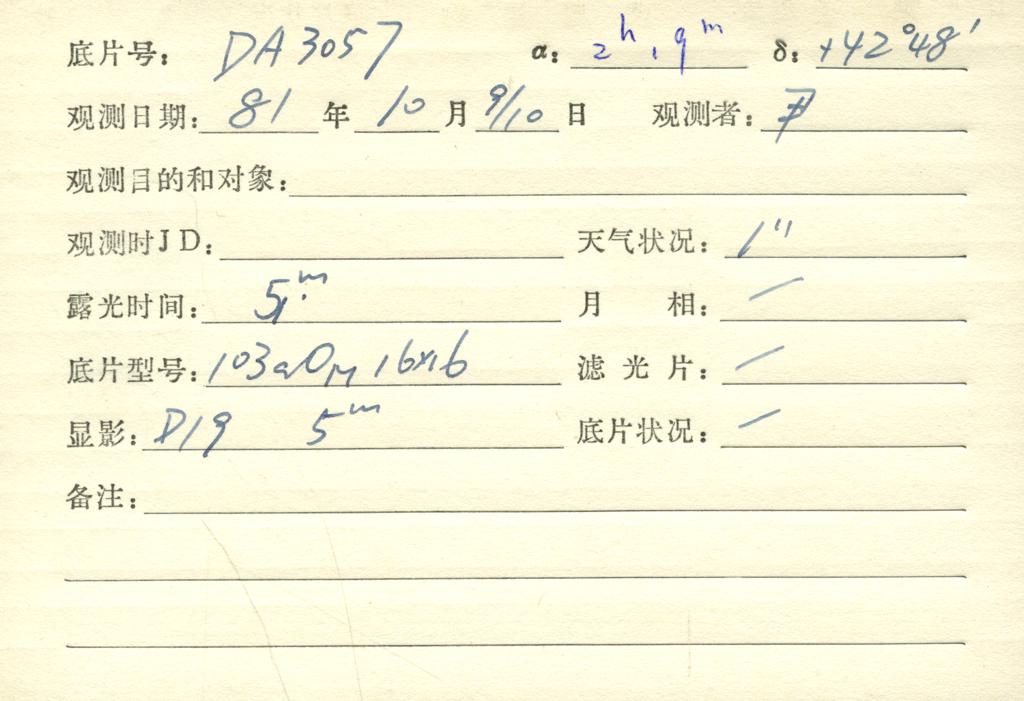 底片号: DA3057 α: 2h19m δ: +42°48'
观测日期: 81 年 10 月 9/10 日 观测者:
观测目的和对象:
观测时JD: 天气状况: 1"
露光时间: 5m 月 相: /
底片型号: 103aO 16x16 滤 光 片: /
显影: D19 5m 底片状况: /
备注: